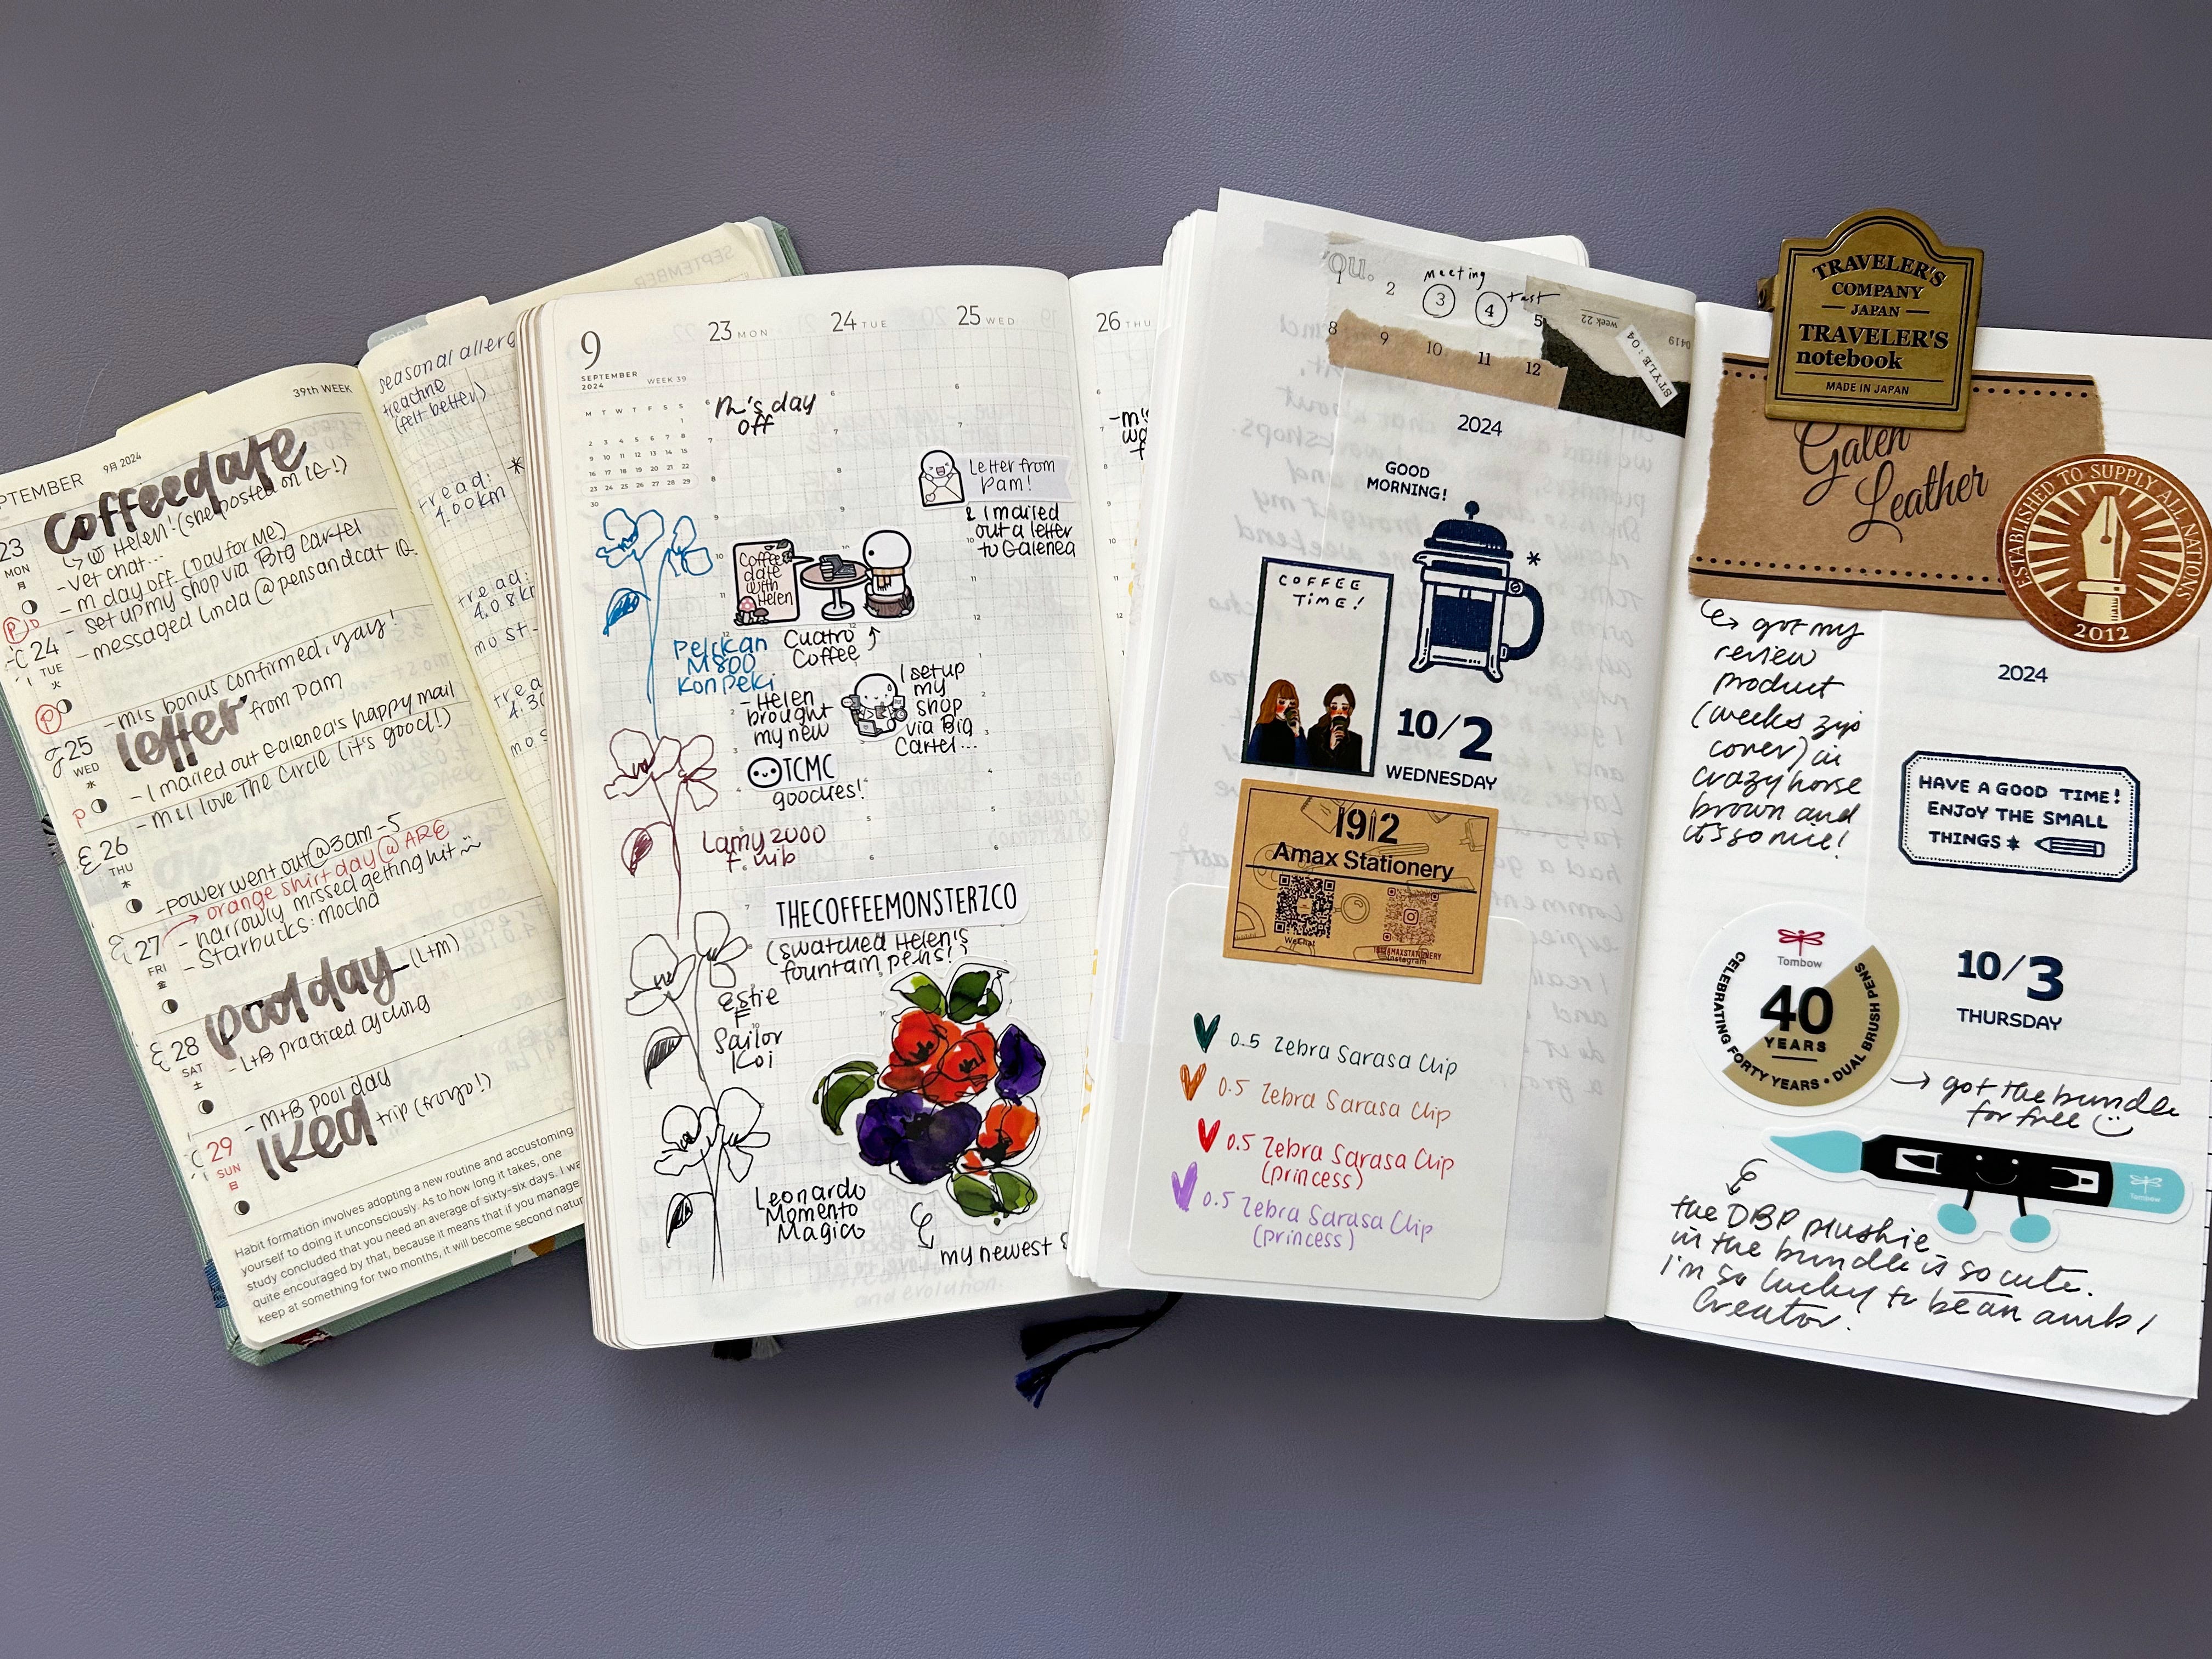 39th WEEK
PTEMBER
9月 2024
23
MON
月
coffee date
↳ w Helen! (she posted on IG!)
- Vet chat...
- m day off. (Day for Me)
- set up my shop via Big Cartel
- messaged Linda @pensandcat IG.
24
TUE
火
- m's bonus confirmed, yay!
25
WED
水
letter from Pam
- I mailed out Galenea's happy mail
- M & I love The Circle (it's good!)
26
THU
木
- power went out @ 3am - 5
→ orange shirt day @ ARE
- narrowly missed getting hit
- Starbucks: mocha
27
FRI
金
pool day (L+M)
- L+B practiced cycling
28
SAT
土
- M+B pool day
IKEA trip (froyo!)
29
SUN
日
Habit formation involves adopting a new routine and accustoming
yourself to doing it unconsciously. As to how long it takes, one
study concluded that you need an average of sixty-six days. I wa
quite encouraged by that, because it means that if you manage
keep at something for two months, it will become second natur
seasonal allerg
(felt better)
tread:
4.00km
tread:
4.08k
9
SEPTEMBER
2024
WEEK 39
M T W T F S S
1
2 3 4 5 6 7 8
9 10 11 12 13 14 15
16 17 18 19 20 21 22
23 24 25 26 27 28 29
30
23 MON
24 TUE
25 WED
26 THU
M's day
off
Letter from
Pam!
& I mailed
out a letter
to Galenea
Coffee
date
with
Helen
Cuatro
Coffee
Pelikan
M800
Kon Peki
- Helen
brought
my new
TCMC
goodies!
I setup
my
shop
via Big
Cartel...
Lamy 2000
F nib
THECOFFEEMONSTERZCO
(swatched Helen's
fountain pens!)
Estie
F
Sailor
Koi
Leonardo
Momento
Magico
my newest
1 2 3 4 5
meeting
8 9 10 11 12
week 22
0419
STYLE:04
2024
GOOD
MORNING!
COFFEE
TIME!
10/2
WEDNESDAY
1912
Amax Stationery
WeChat
1912AMAXSTATIONERY
Instagram
0.5 Zebra Sarasa Clip
0.5 Zebra Sarasa Clip
0.5 Zebra Sarasa Clip
(princess)
0.5 Zebra Sarasa Clip
(princess)
TRAVELER'S
COMPANY
JAPAN
TRAVELER'S
notebook
MADE IN JAPAN
Galen
Leather
ESTABLISHED TO SUPPLY ALL NATIONS
2012
↳ got my
review
product
(weeks zip
cover) in
crazy horse
brown and
it's so nice!
2024
HAVE A GOOD TIME!
ENJOY THE SMALL
THINGS
Tombow
40
YEARS
CELEBRATING FORTY YEARS • DUAL BRUSH PENS
10/3
THURSDAY
→ got the bundle
for free
Tombow
the DBP plushie
in the bundle is so cute.
I'm so lucky to be an amb/
Creator.